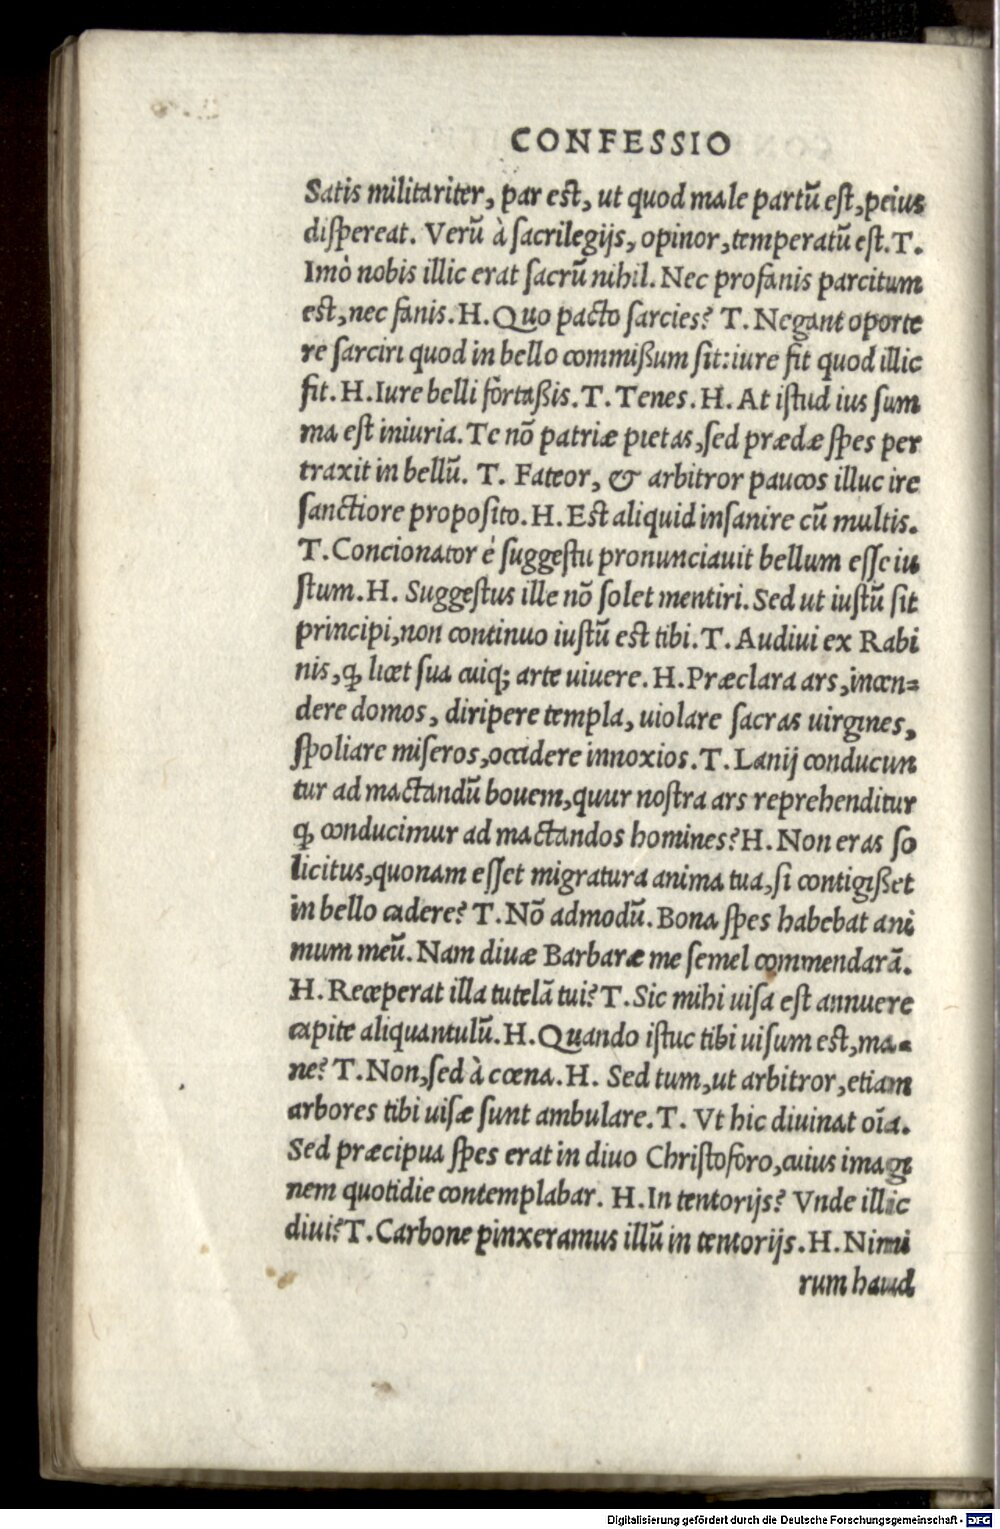 CONFESSIO
Satis militariter, par est, ut quod male partũ est, peius
dispereat. Verũ à sacrilegijs, opinor, temperatũ est. T.
Imò nobis illic erat sacrũ nihil. Nec profanis parcitum
est, nec fanis. H. Quo pacto sarcies? T. Negant oporte
re sarciri quod in bello commißum sit: iure fit quod illic
fit. H. Iure belli fortaßis. T. Tenes. H. At istud ius sum
ma est iniuria. Te nõ patriæ pietas, sed prædæ spes per
traxit in bellũ. T. Fateor, & arbitror paucos illuc ire
sanctiore proposito. H. Est aliquid insanire cũ multis.
T. Concionator è suggestu pronunciauit bellum esse iu
stum. H. Suggestus ille nõ solet mentiri. Sed ut iustũ sit
principi, non continuo iustũ est tibi. T. Audiui ex Rabi
nis, ꝙ licet sua cuiq; arte uiuere. H. Præclara ars, incen=
dere domos, diripere templa, uiolare sacras uirgines,
spoliare miseros, occidere innoxios. T. Lanij conducun
tur ad mactandũ bouem, quur nostra ars reprehenditur
ꝙ conducimur ad mactandos homines? H. Non eras so
licitus, quonam esset migratura anima tua, si contigißet
in bello cadere? T. Nõ admodũ. Bona spes habebat ani
mum meũ. Nam diuæ Barbaræ me semel commendarã.
H. Receperat illa tutelã tui? T. Sic mihi uisa est annuere
capite aliquantulũ. H. Quando istuc tibi uisum est, ma=
ne? T. Non, sed à cœna. H. Sed tum, ut arbitror, etiam
arbores tibi uisæ sunt ambulare. T. Vt hic diuinat oĩa.
Sed præcipua spes erat in diuo Christoforo, cuius imagi
nem quotidie contemplabar. H. In tentorijs? Vnde illic
diui? T. Carbone pinxeramus illũ in tentorijs. H. Nimi
rum haud
Digitalisierung gefördert durch die Deutsche Forschungsgemeinschaft - DFG